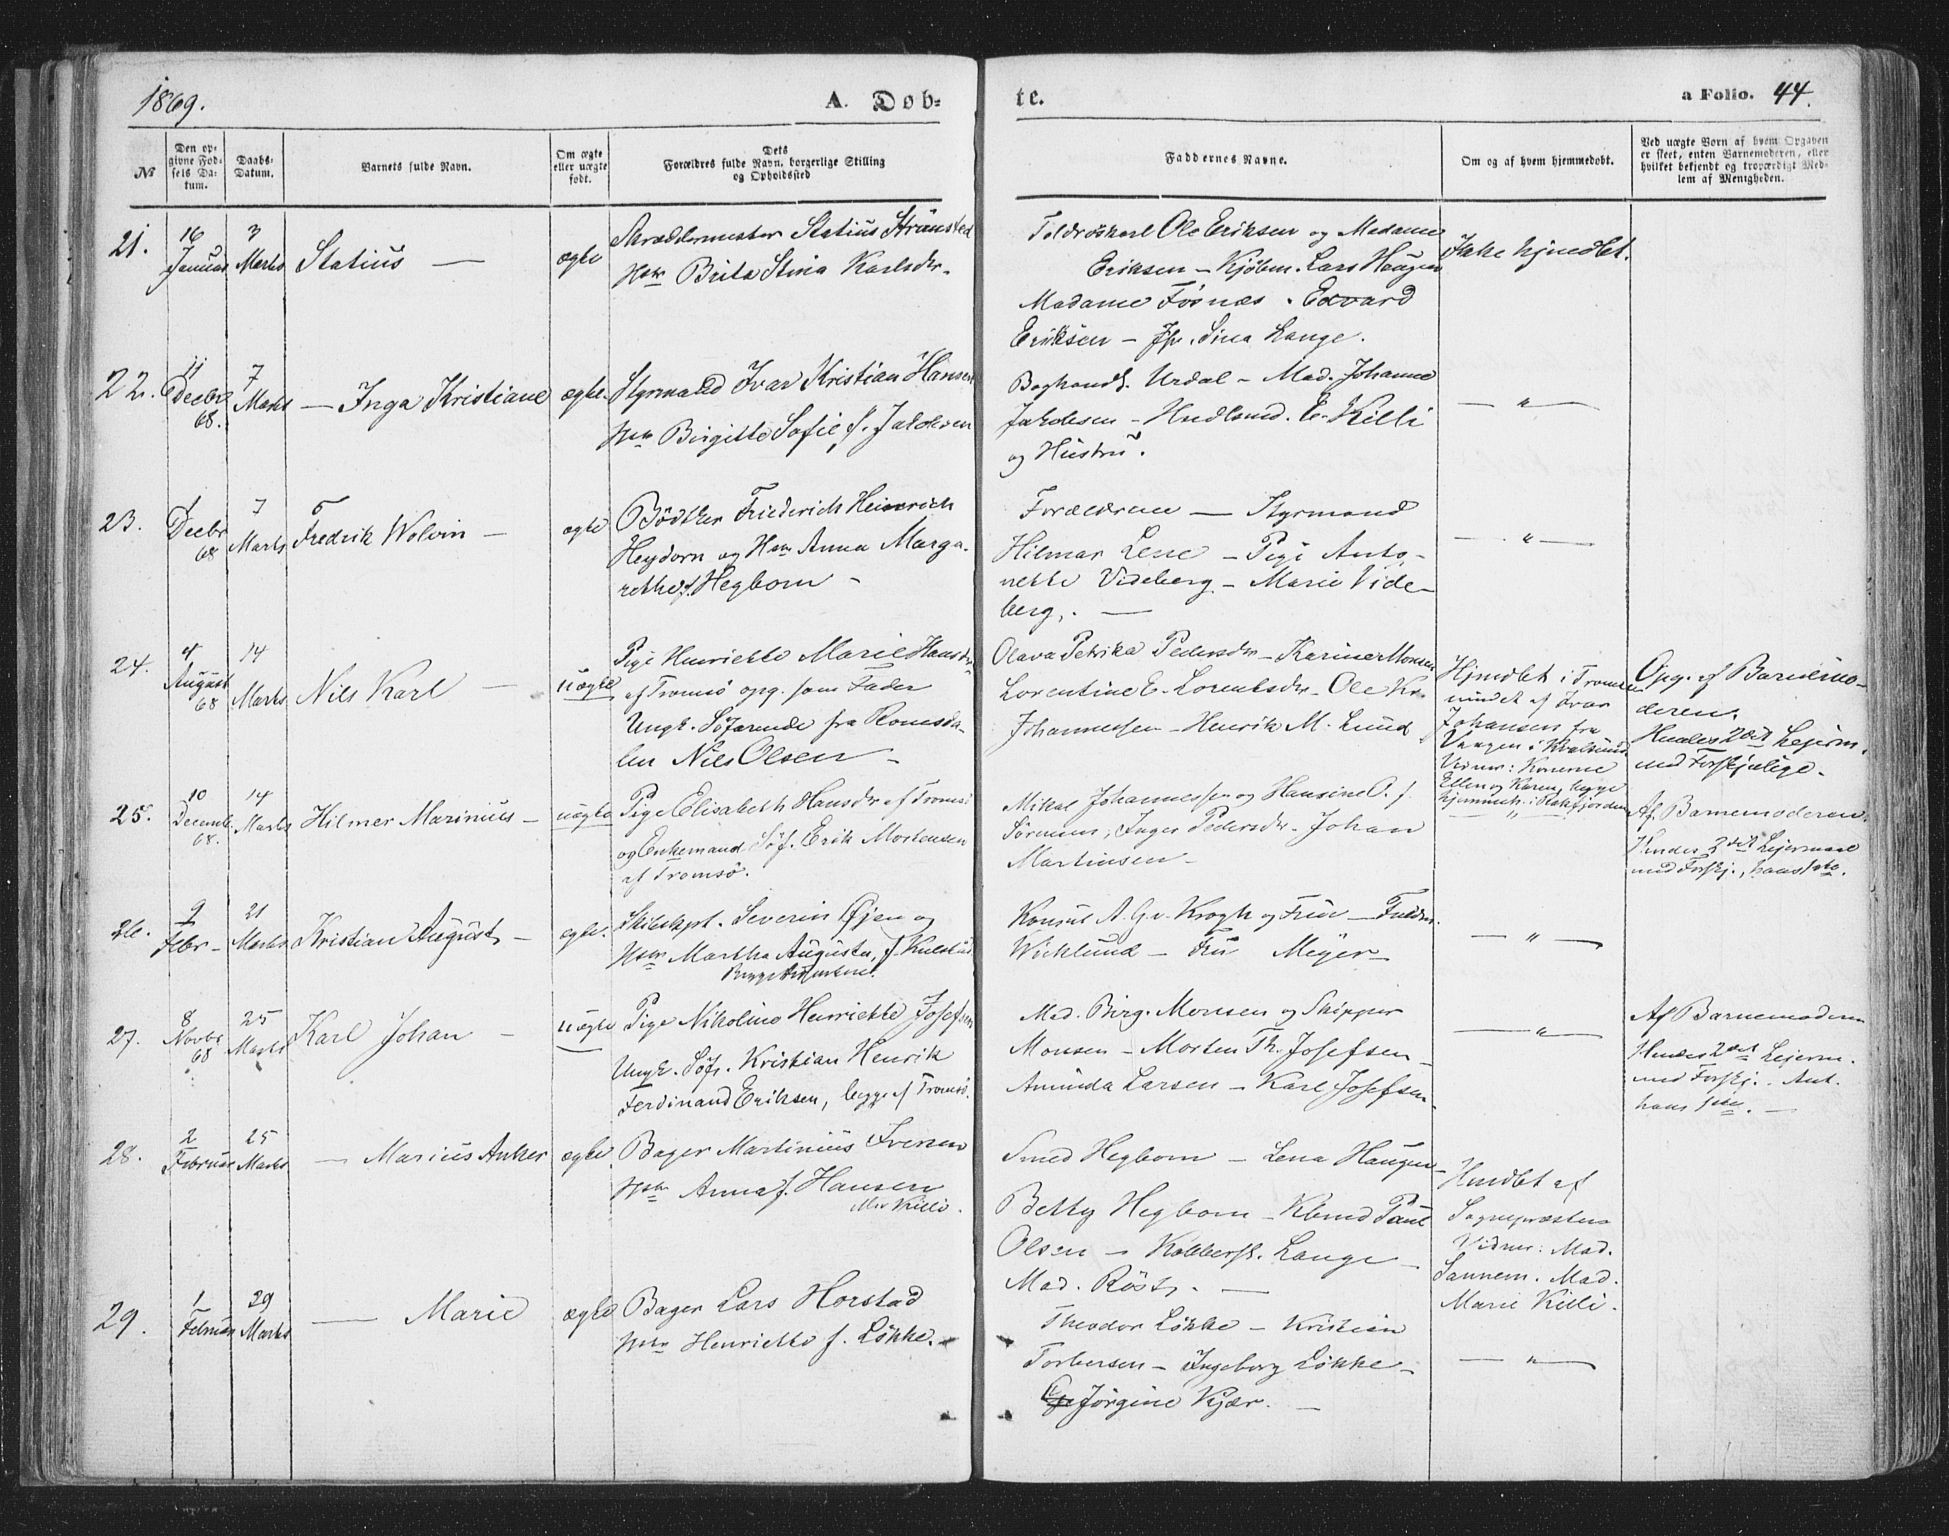 1869.
A. Døb-
te.
a Folio. 44.
№
Den op-
givne Fød-
sels Da-
tum.
Daabs-
Datum.
Barnets fulde Navn.
Om ægte
eller uægte
født.
Dets
Forældres fulde Navn, borgerlige Stilling
og Opholdssted
Faddernes Navne.
Om og af hvem hjemmedøbt.
Ved uægte Børn af hvem Opgaven
er skeet, enten Barnemoderen, eller
hvilket bekjendt og troværdigt Med-
lem af Menigheden.
21.
16
Januar
3
Marts
Statius —
ægte
Skræddermester Statius Strömsted
Hstr Brita Stina Karlsdr.
Toldroskarl Ole Eriksen og Madame
Eriksen — Kjöbm. Lars Haugen
Madame Fosnæs . Edvard
Eriksen — Jfr. Sina Lange.
Ikke hjmdbt.
22.
11
Decbr
68.
7
Marts
— Inga Kristiane
ægte.
Styrmand Ivar Kristian Hansen
Hstr Birgitte Sofie f. Jakobsen
Boghandl. Urdal — Mad. Johanne
Jakobsen — Hndlsmd. E. Killi
og Hustru.
— " —
23.
1
Decbr
68
7
Marts
Fredrik Wolvin —
ægte
Bödtker Friederich Heinrich
Heydorn og Hstr Anna Marga-
rethe f. Hegbom —
Forældrene — Styrmand
Hilmar Lene — Pige Anto-
nette Videberg — Marie Vide-
berg. —
— " —
24.
4
August
68
14
Marts
Nils Karl —
uægte
Pige Henriette Marie Hansdr
af Tromsö opg. som Fader
Ungk. Söfarende fra Romsda-
len Nils Olsen —
Olava Petrika Pedersdr — Karine Monsen
Lorentine E. Lorentsdr — Ole Kr.
Johannessen — Henrik M. Lund
Hjmdbt i Tromsö
sundet af Ivar
Johansen fra
Vaagen i Kvalsund
Vidner: Konerne
Ellen og Karen, begge
hjemmeh. i Balsfjorden
Opg. af Barnemo-
deren.
Hendes 2det Lejerm.
med Forskjelige.
25.
10
Decemb.
68.
14
Marts
Hilmer Marinius —
uægte
Pige Elisabeth Hansdr af Tromsö
og Enkemand Söf. Erik Mortensen
af Tromsö.
Mikal Johannessen og Hansine O. f.
Sörensen, Inger Pedersdr. Johan
Martinsen —
— " —
Af Barnemoderen.
Hendes 2det Lejermaal
med Forskj., hans 1ste.
26.
9
Febr —
21
Marts
Kristian August —
ægte.
Skibskpt. Severin Öjen og
Hstr Martha Augusta, f. Kulstad
Konsul A. Gv. Krogh og Frue — Fuldm.
Wicklund — Fru Meyer —
— " —
27.
8
Novbr
68
25
Marts
Karl Johan —
uægte
Pige Nikoline Henriette Josefsen
Ungk. Söf. Kristian Henrik
Ferdinand Eriksen, begge af Tromsö.
Mad. Birg. Monsen og Skipper
Monsen — Morten Th. Josefsen —
Aminda Larsen — Karl Josefsen —
— " —
Af Barnemoderen
Hendes 2det Lejerm.
med Forskj. . Ant.
hans 1ste. —
28.
2
Februar
25
Marts
— Marius Anker
ægte
Bager Martinius Svensen
Hstr Anna f. Hansen
Mrs Killi.
Smed Hegbom — Lena Haugen —
Betty Hegbom — Kbmd Paul
Olsen — Kobbersl. Lange —
Mad. Röst. —
Hmdbt af
Sognepræsten
Vidner: Mad.
Sannem. Mad.
Marie Killi.
29.
1
Februar
29
Marts
— Marie
ægte
Bager Lars Horstad
Hstr Henriette f. Lökke.
Theodor Lökke — Kristian
Torbersen — Ingeborg Lökke —
Jörgine Kjær. —
— " —